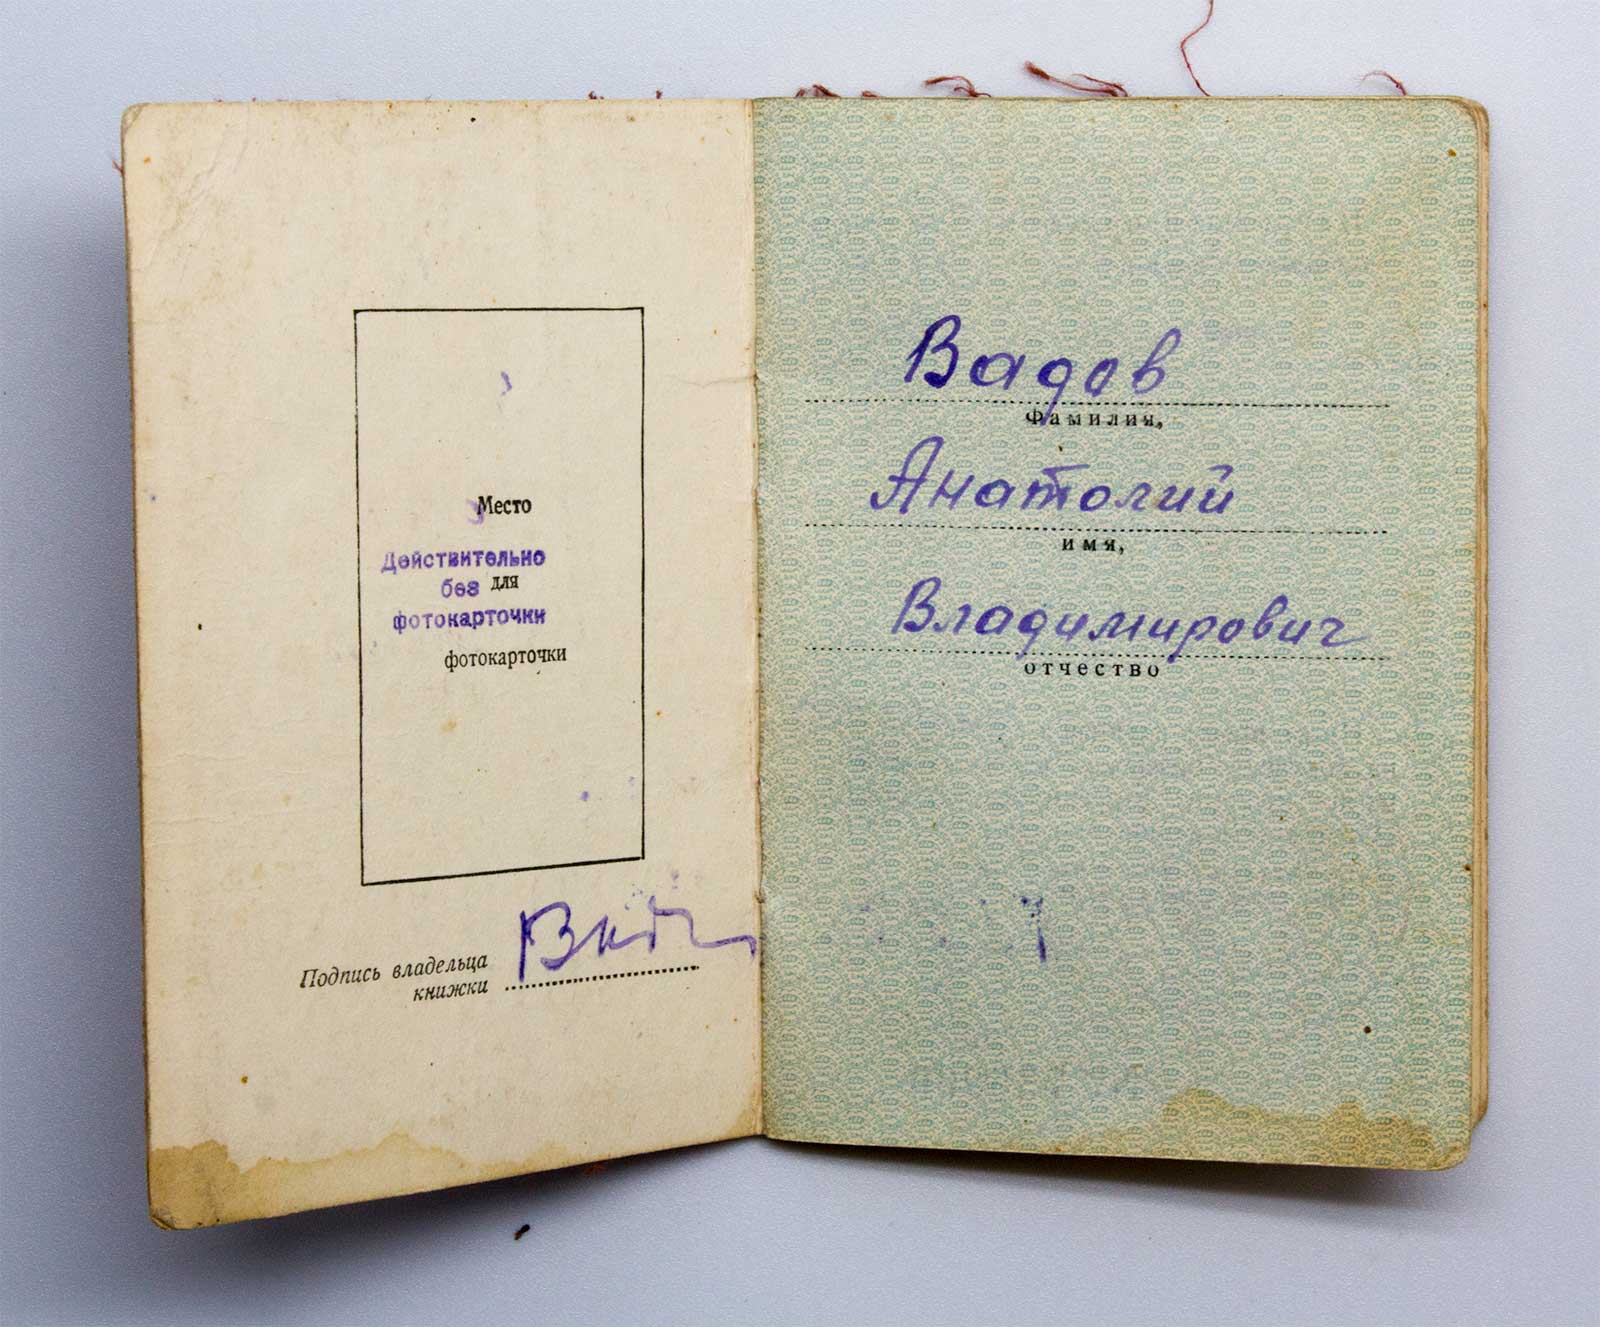 Место
Действительно
без для
фотокарточки
фотокарточки
Подпись владельца
книжки
Вадов
Фамилия,
Анатолий
имя,
Владимирович
отчество